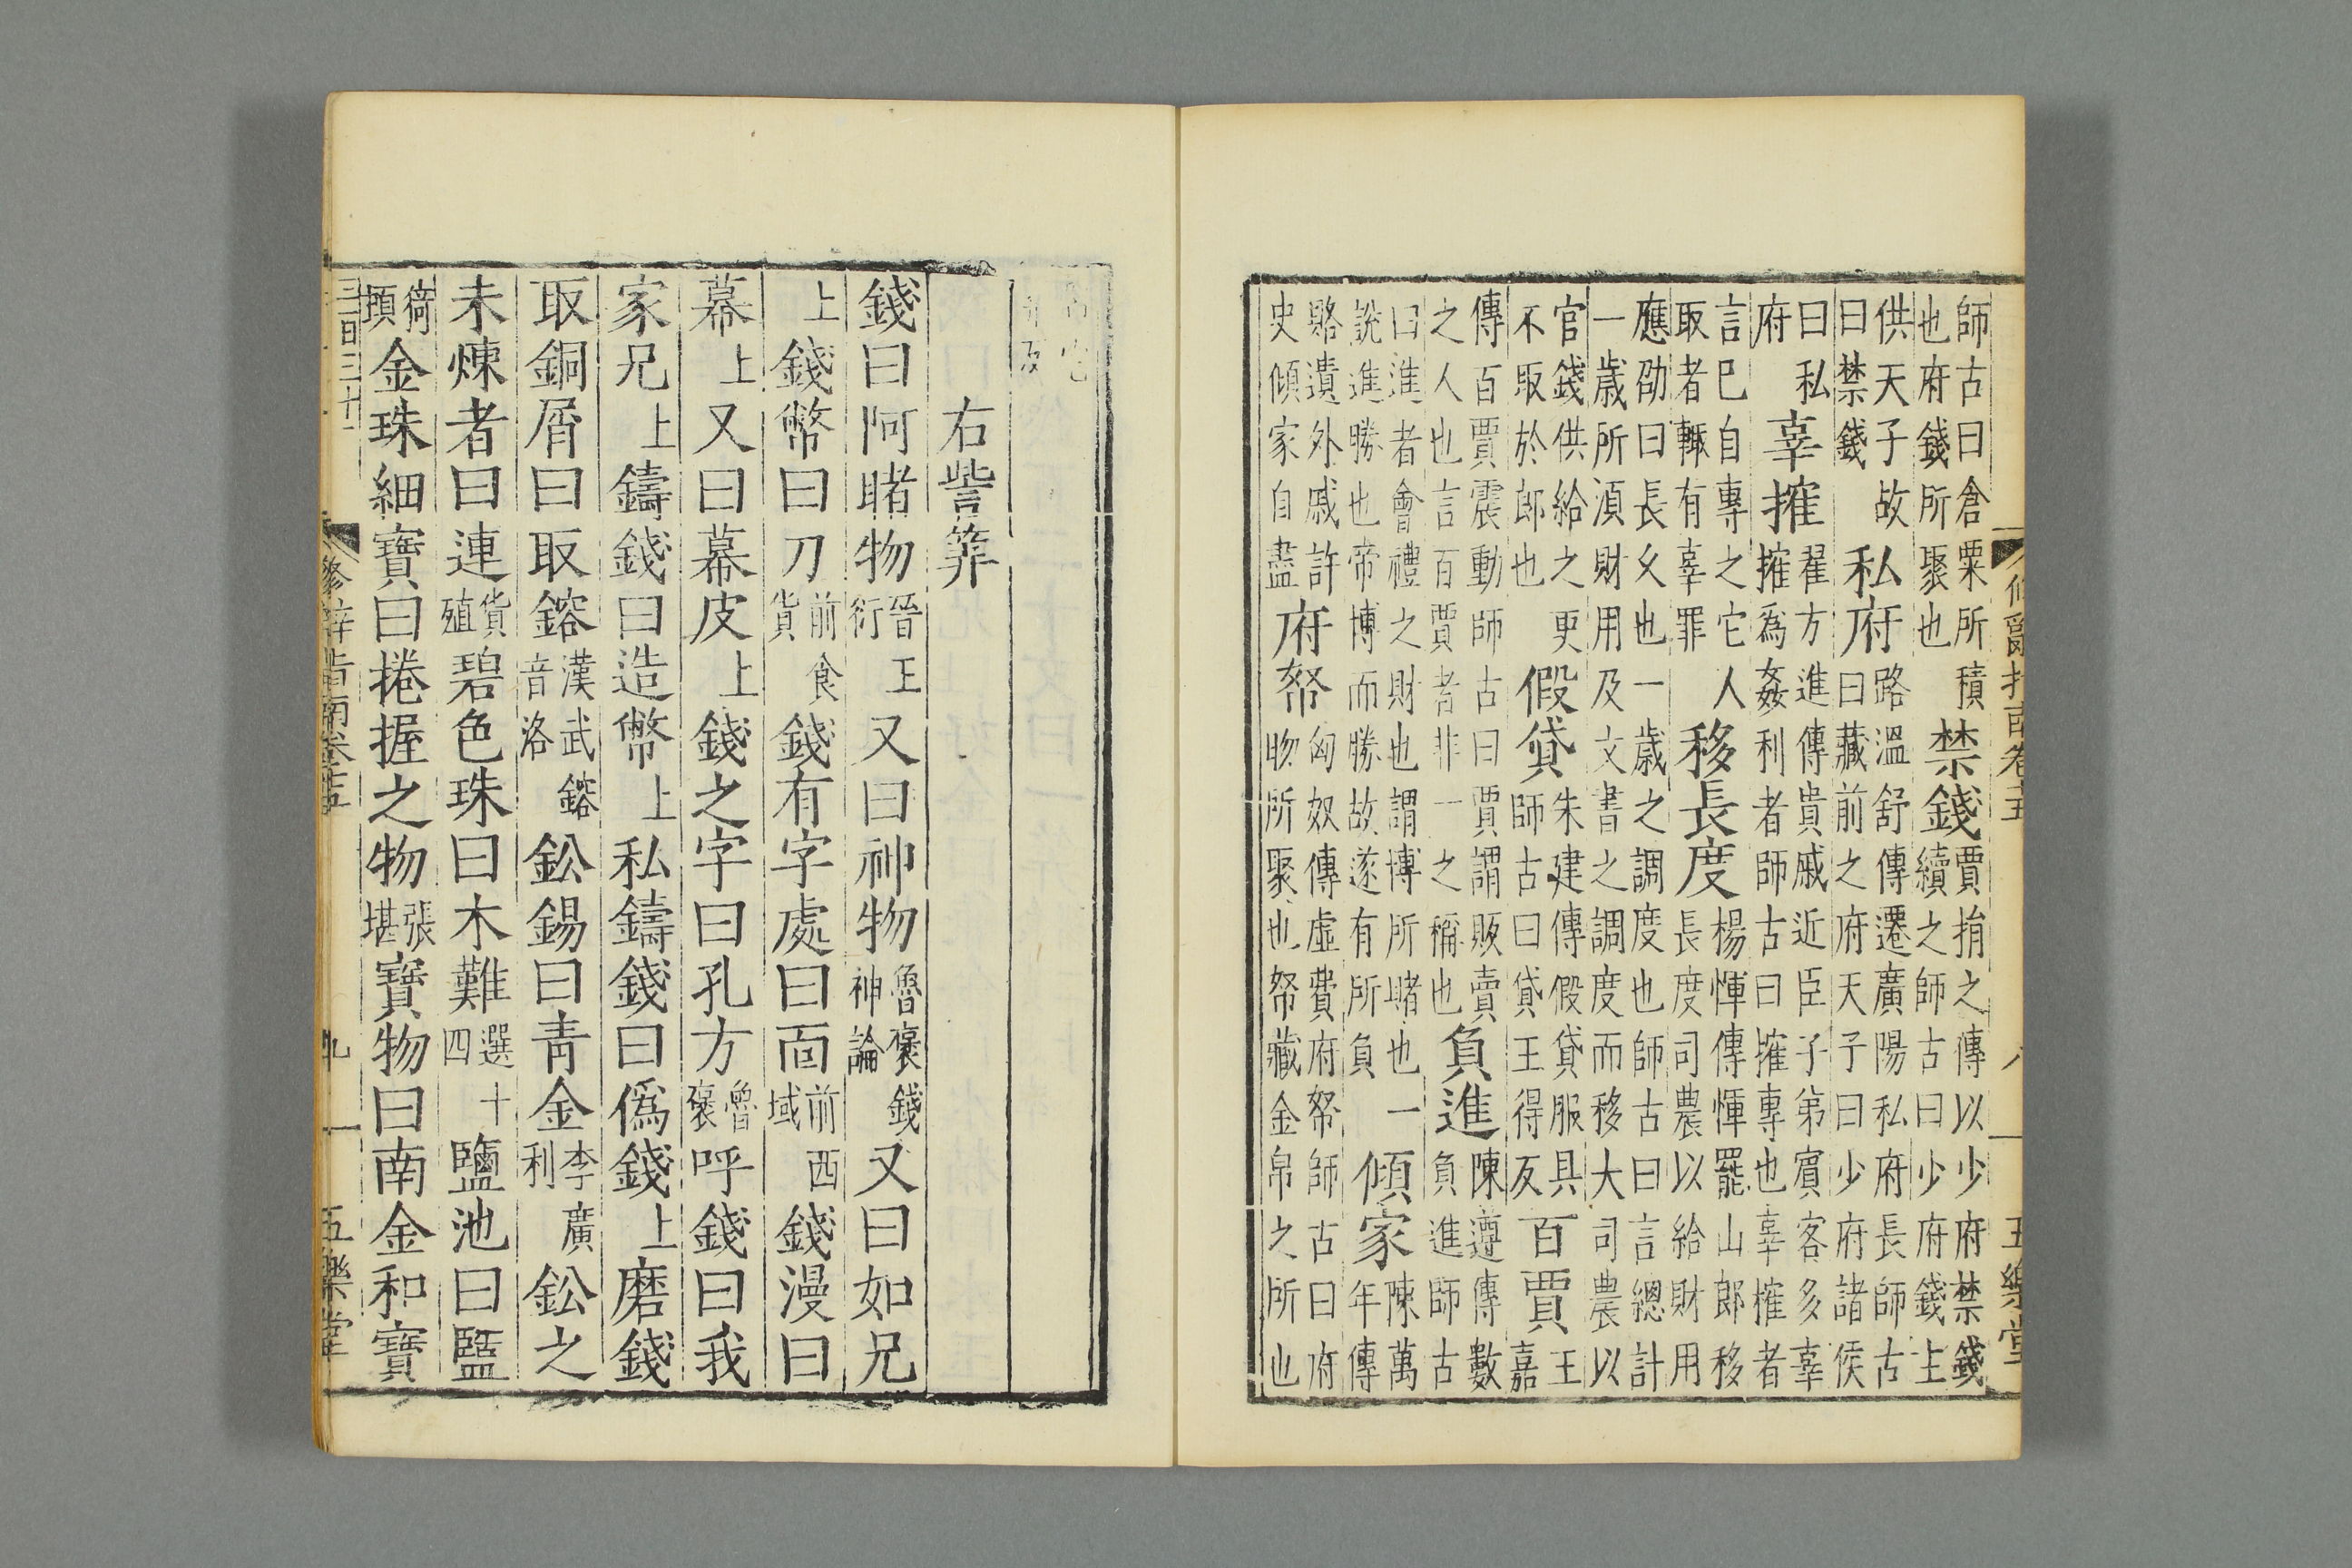 師古曰倉粟所積也府錢所聚也禁錢賈捐之傳以少府禁錢續之師古曰少府錢主
供天子故曰禁錢私府路溫舒傳遷廣陽私府長師古曰藏前之府天子曰少府諸侯
曰私府辜搉翟方進傳貴戚近臣子弟賓客多辜搉為姦利者師古曰搉專也辜搉者
言已自專之它人取者輙有辜罪移長度楊惲傳惲罷山郎移長度司農以給財用
應劭曰長久也一歲之調度也師古曰言總計一歲所湏財用及文書之調度而移大司農以
官錢供給之更不取於郎也假貸朱建傳假貸服具師古曰貸王得反百賈王嘉
傳百賈震動師古曰賈謂販賣之人也言百賈者非一之稱也負進陳遵傳數負進師古
曰進者會禮之財也謂博所賭也一說進勝也帝博而勝故遂有所負傾家陳萬年傳
賂遺外戚許史傾家自盡府帑匈奴傳虛費府帑師古曰府物所聚也帑藏金帛之所也
五樂堂
右訾筭
錢曰阿睹物晉王衍又曰神物魯褒錢神論又曰如兄
上錢幣曰刀前食貨錢有字處曰面前西域錢漫曰
幕上又曰幕皮上錢之字曰孔方魯褒呼錢曰我
家兄上鑄錢曰造幣上私鑄錢曰偽錢上磨錢
取銅屑曰取鎔漢武鎔音洛鈆錫曰青金李廣利鈆之
未煉者曰連貨殖碧色珠曰木難選十四鹽池曰盬
猗頓金珠細寶曰捲握之物張堪寶物曰南金和寶
三百三十一
修辭指南卷十五
九
五樂堂